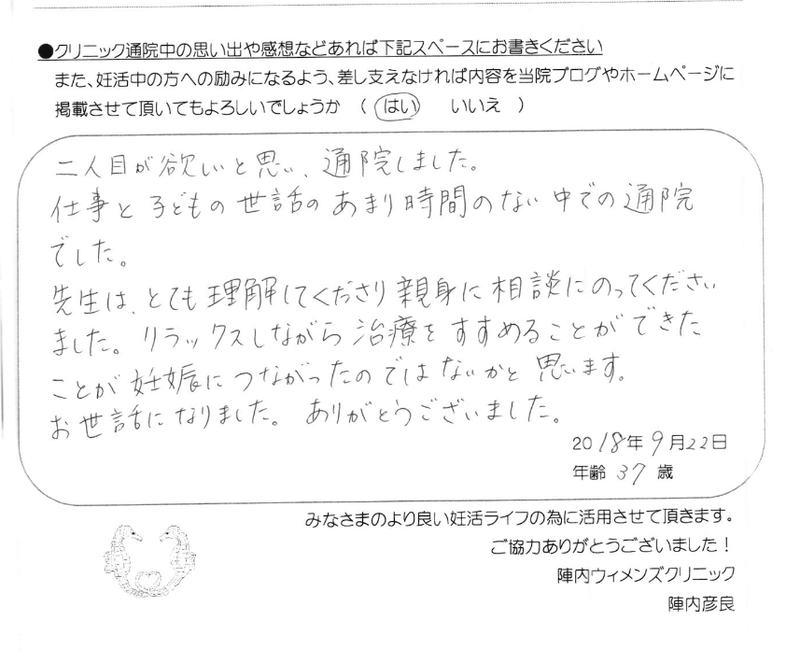 ●クリニック通院中の思い出や感想などあれば下記スペースにお書きください
また、妊活中の方への励みになるよう、差し支えなければ内容を当院ブログやホームページに
掲載させて頂いてもよろしいでしょうか （ はい いいえ ）
二人目が欲しいと思い、通院しました。
仕事と子どもの世話のあまり時間のない中での通院
でした。
先生は、とても理解してくださり親身に相談にのってください
ました。リラックスしながら治療をすすめることができた
ことが妊娠につながったのではないかと思います。
お世話になりました。ありがとうございました。
2018年9月22日
年齢 37 歳
みなさまのより良い妊活ライフの為に活用させて頂きます。
ご協力ありがとうございました！
陣内ウィメンズクリニック
陣内彦良